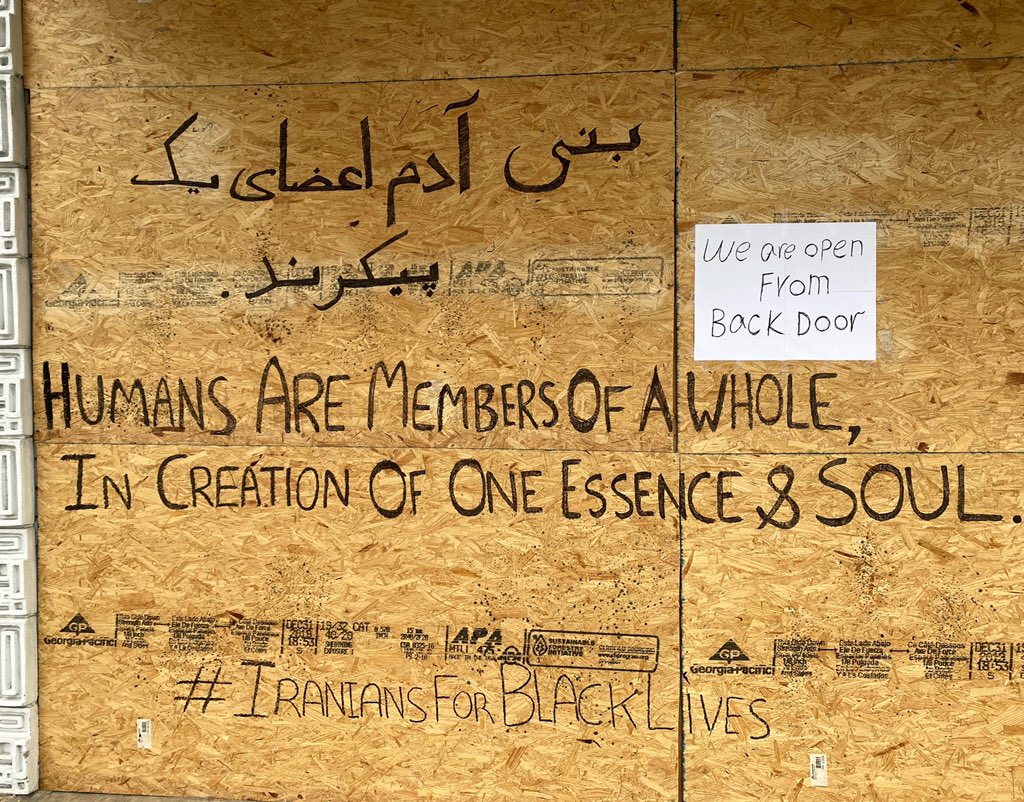 بنی آدم اعضای یک
پیکرند.
We are open
From
Back Door
HUMANS ARE MEMBERS OF A WHOLE,
IN CREATION OF ONE ESSENCE & SOUL.
GP
Georgia-Pacific
DEC31
18:53
S
19/32 CAT
40/20
APA
SUSTAINABLE
FORESTRY
INITIATIVE
GP
Georgia-Pacific
DEC31
18:53
S
#IRANIANSFORBLACKLIVES